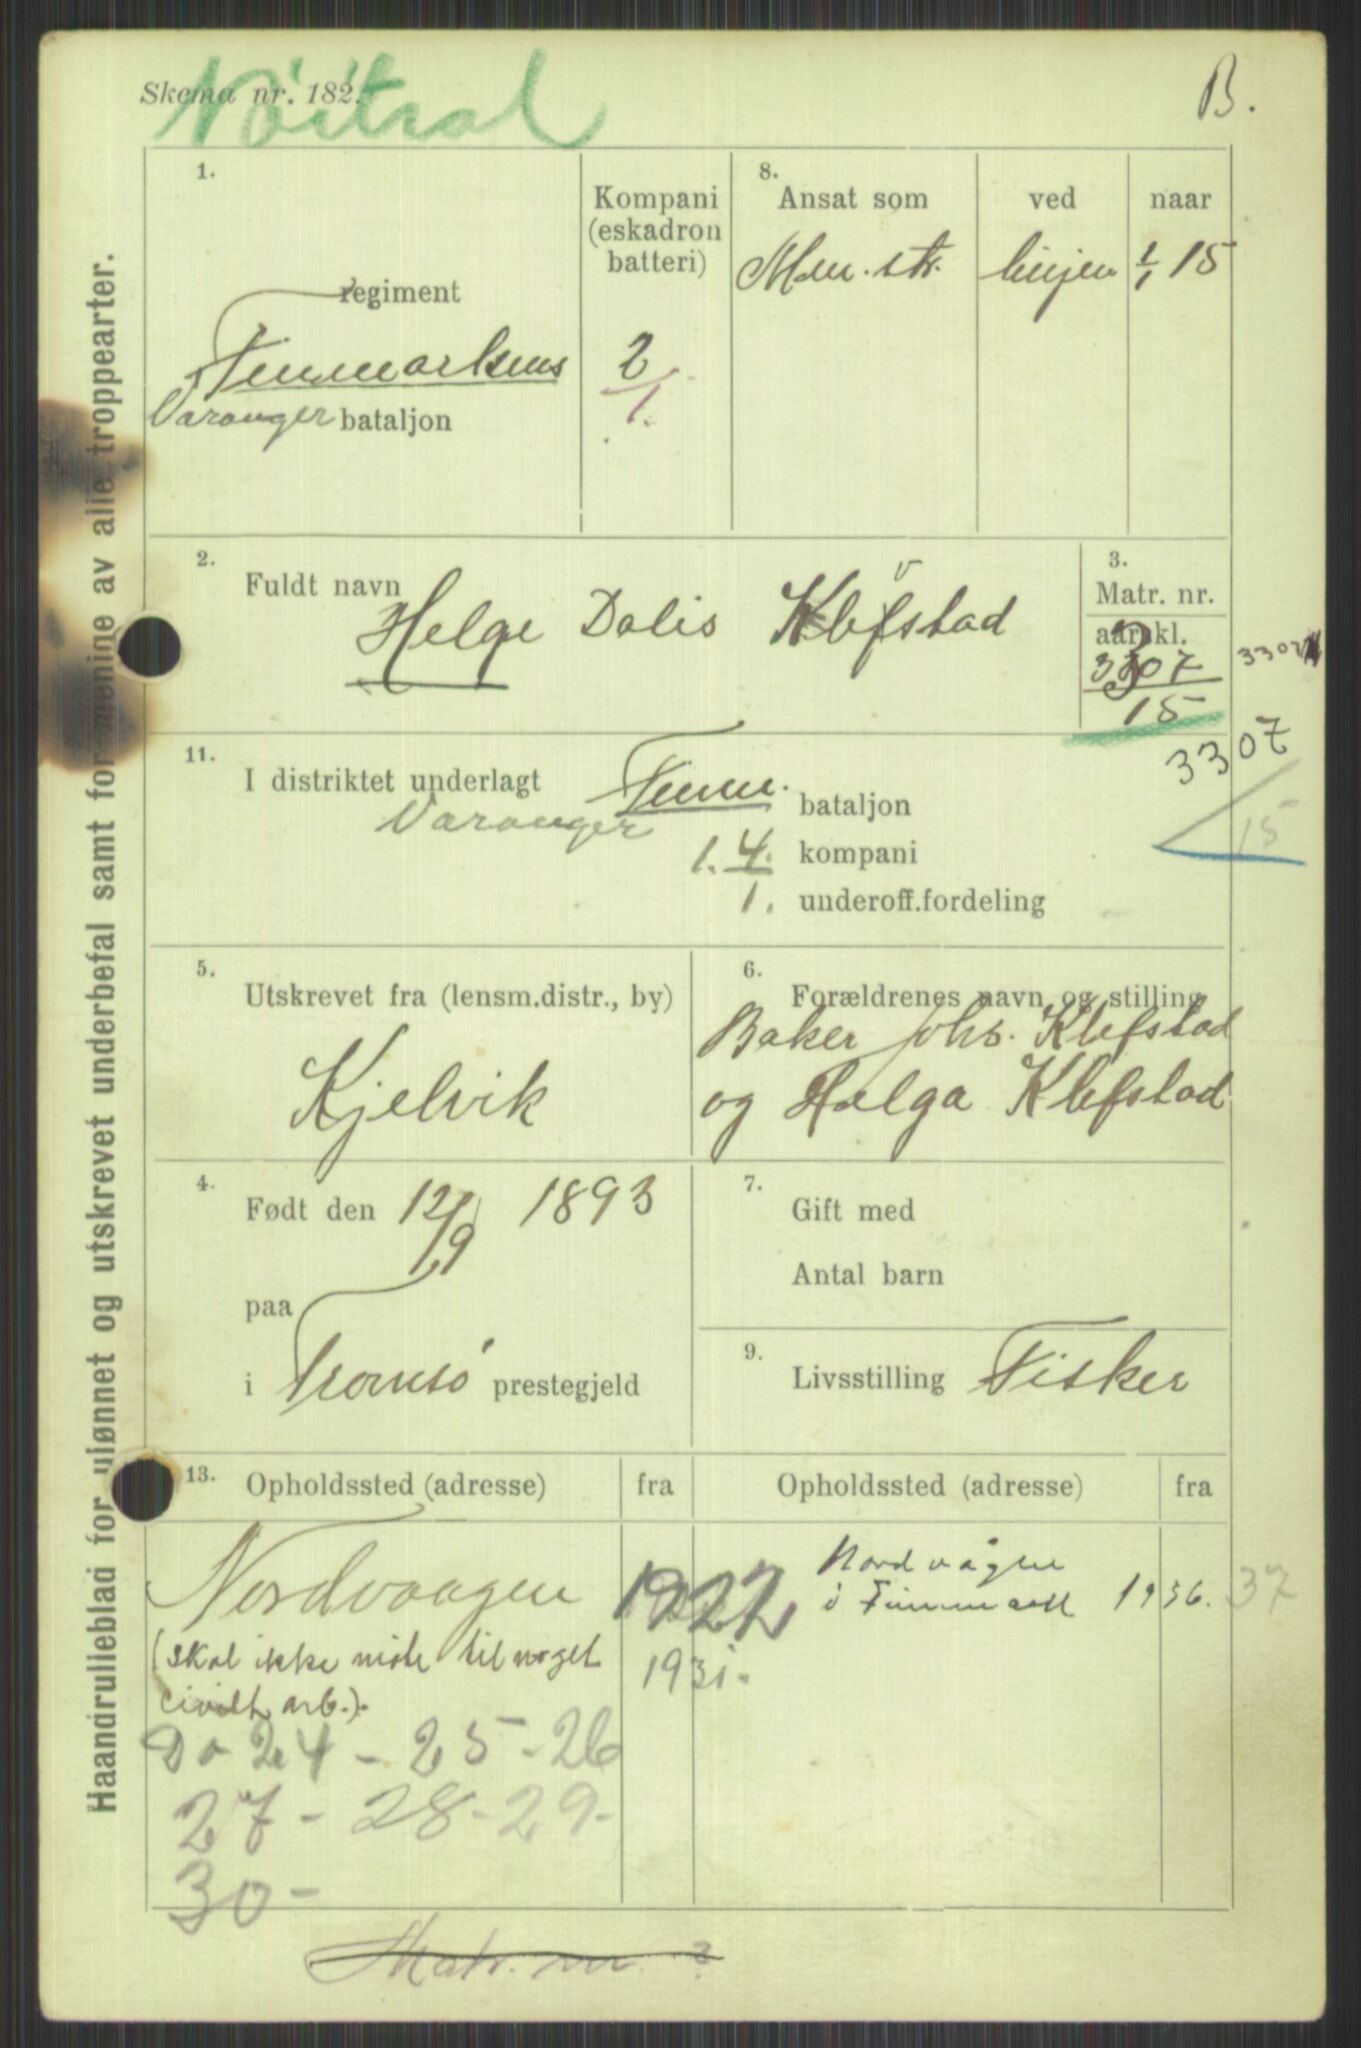 Skema nr. 182.
Nöitral
B.
1.
regiment
Finmarkens
Varanger bataljon
Kompani
(eskadron
batteri)
2
1.
8.
Ansat som
ved
naar
Men. str.
linjen
1/1 15
2.
Fuldt navn
Helge Dalis Klefstad
v
3.
Matr. nr.
aarskl.
3307
15
3307
15
11.
I distriktet underlagt Finm. bataljon
Varanger
1. 4. kompani
1. underoff.fordeling
5.
Utskrevet fra (lensm.distr., by)
Kjelvik
6.
Forældrenes navn og stilling
Baker Johs. Klefstad
og Helga Klefstad
4.
Født den 12/9 1893
paa
i Tromsö prestegjeld
7.
Gift med
Antal barn
9.
Livsstilling Fisker
13.
Opholdssted (adresse)
fra
Opholdssted (adresse)
fra
Nordvaagen 1922
(skal ikke möte til noget
civilt arb.).
1931.
Do 24 - 25 - 26
27 - 28 - 29 -
30 -
Nordvågen
i Finnmark 1936. 37
Matr. nr. ?
Haandrulleblad for vjønnet og utskrevet underbefal samt for menine av alle troppearter.